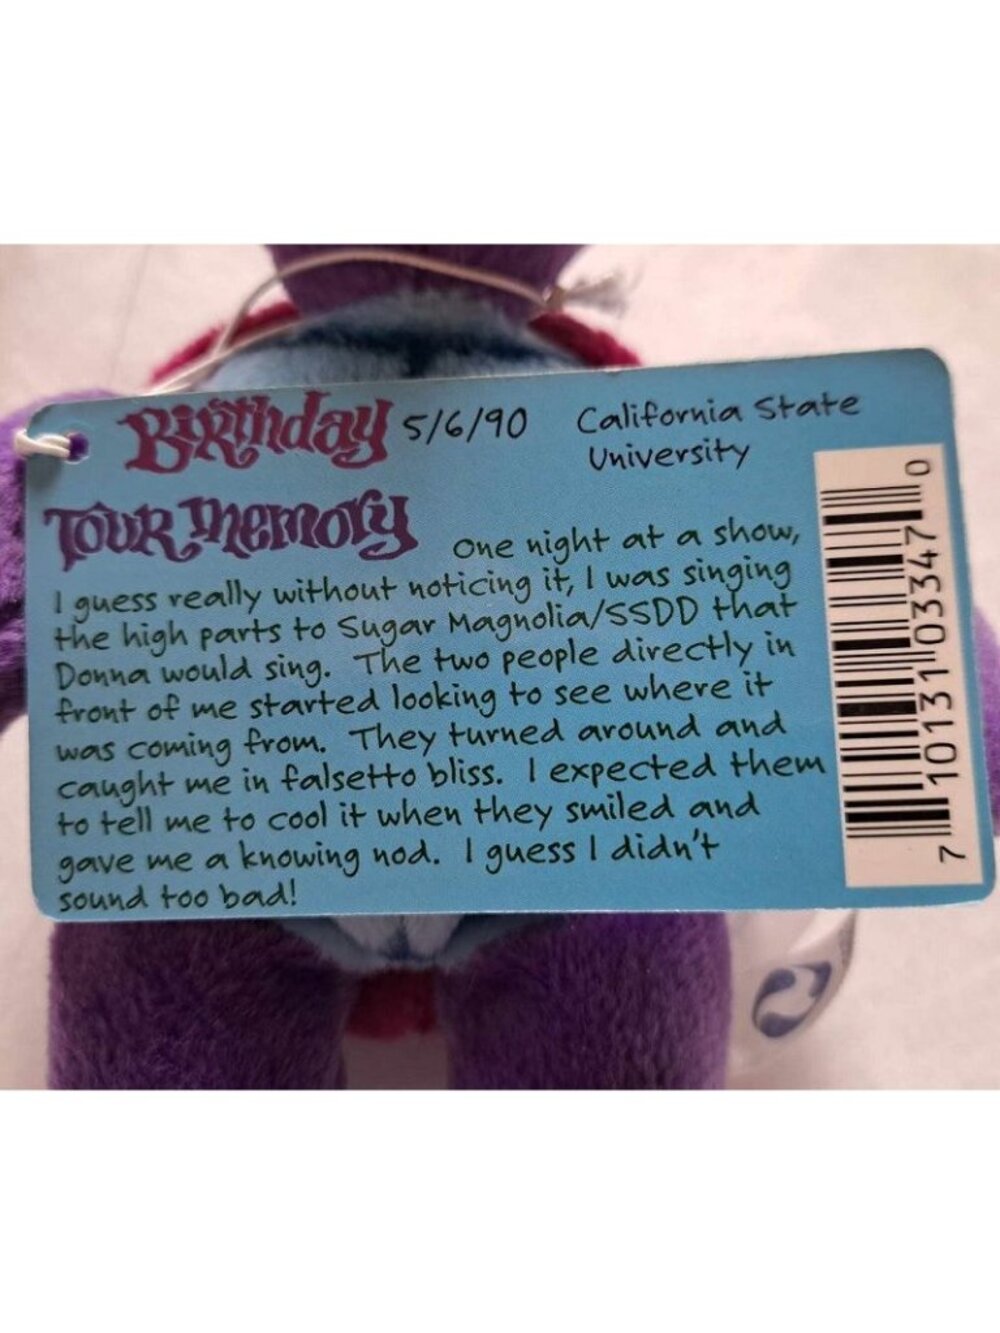 Birthday 5/6/90 California State
University
Tour Memory One night at a show,
I guess really without noticing it, I was singing
the high parts to Sugar Magnolia/SSDD that
Donna would sing. The two people directly in
front of me started looking to see where it
was coming from. They turned around and
caught me in falsetto bliss. I expected them
to tell me to cool it when they smiled and
gave me a knowing nod. I guess I didn't
sound too bad!
7 10131 03347 0